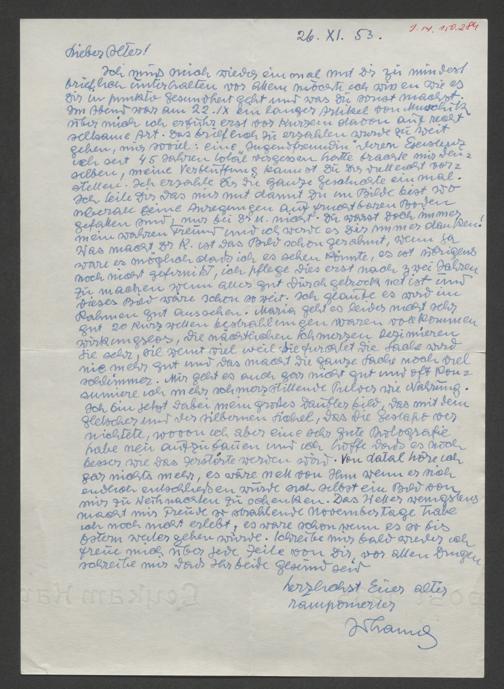 J.N. 150.284
26. XI. 53.
Lieber Alter!
Ich muss mich wieder einmal mit Dir zu mindest
brieflich unterhalten vor allem möchte ich wissen wie es
Dir in punkto Gesundheit geht und was Du sonst machst.
Im Abend war am 22. IX ein langer Artikel von Muschik
über mich ich erfuhr erst vor kurzem davon auf recht
seltsame Art. Das brieflich zu erzählen würde zu weit
gehen, nur soviel: eine "Jugendfreundin" deren Existenz
ich seit 45 Jahren total vergessen hatte brachte mir den-
selben, meine Verblüffung kannst Du Dir vielleicht vor-
stellen. Ich erzähle Dir die ganze Geschichte einmal.
Ich teile Dir das nur mit damit Du im Bilde bist wo
überall Deine Anregungen auf fruchtbaren Boden
gefallen sind, nur bei Dr. K. nicht. Du warst doch immer
mein wahrer Freund und ich werde es Dir immer danken!
Was macht Dr K. ist das Bild schon gerahmt, wenn ja
wäre es möglich dass ich es sehen könnte, es ist übrigens
noch nicht gefirnißt, ich pflege dies erst nach zwei Jahren
zu machen wenn alles gut durchgetrocknet ist und
dieses Bild wäre schon so weit. Ich glaube es wird im
Rahmen gut aussehen. Maria geht es leider nicht sehr
gut 20 Kurzwellen bestrahlungen waren vollkommen
wirkungslos, die nächtlichen Schmerzen dezimieren
sie sehr, sie weint viel weil sie fürchtet die Sache wird
nie mehr gut und das macht die ganze Sache noch viel
schlimmer. Mir geht es auch gar nicht gut und oft kon-
sumiere ich mehr schmerzstillende Pulver wie Nahrung.
Ich bin jetzt dabei mein großes bild, das mit dem
Gletscher und der silbernen Sichel, das die Gestapo ver
nichtete, wovon ich aber eine sehr gute Photografie
habe neu aufzubauen und ich hoffe dass es noch
besser wie das zerstörte werden wird. Von höre ich
gar nichts mehr, es wäre nett von ihm wenn er sich
endlich entschließen würde sich selbst ein Bild von
mir zu Weihnachten zu schenken. Das Wetter wenigstens
macht mir Freude so strahlende Novembertage habe
ich noch nicht erlebt, es wäre schön wenn es so bis
Ostern weiter gehen würde. Schreibe mir bald wieder ich
freue mich über jede Zeile von Dir, vor allen Dingen
schreibe mir dass Ihr beide gesund seid
herzlichst Euer alter
ramponierter